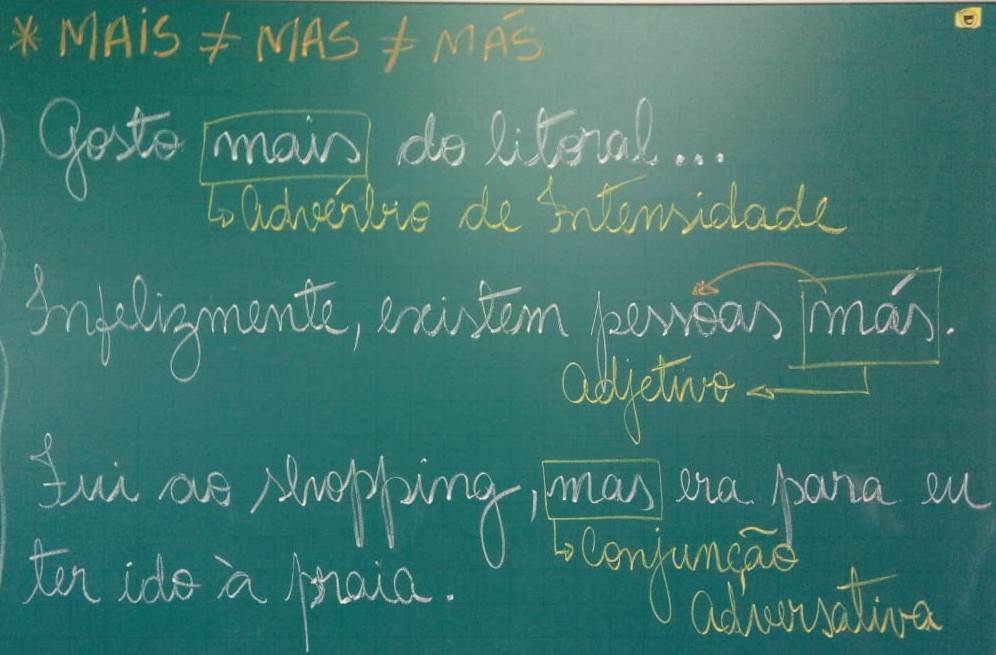 * MAIS ≠ MAS ≠ MÁS
Gosto mais do litoral...
↳ Advérbio de Intensidade
Infelizmente, existem pessoas más.
Adjetivo
Fui ao shopping, mas era para eu
↳ Conjunção
ter ido à praia.
Adversativa